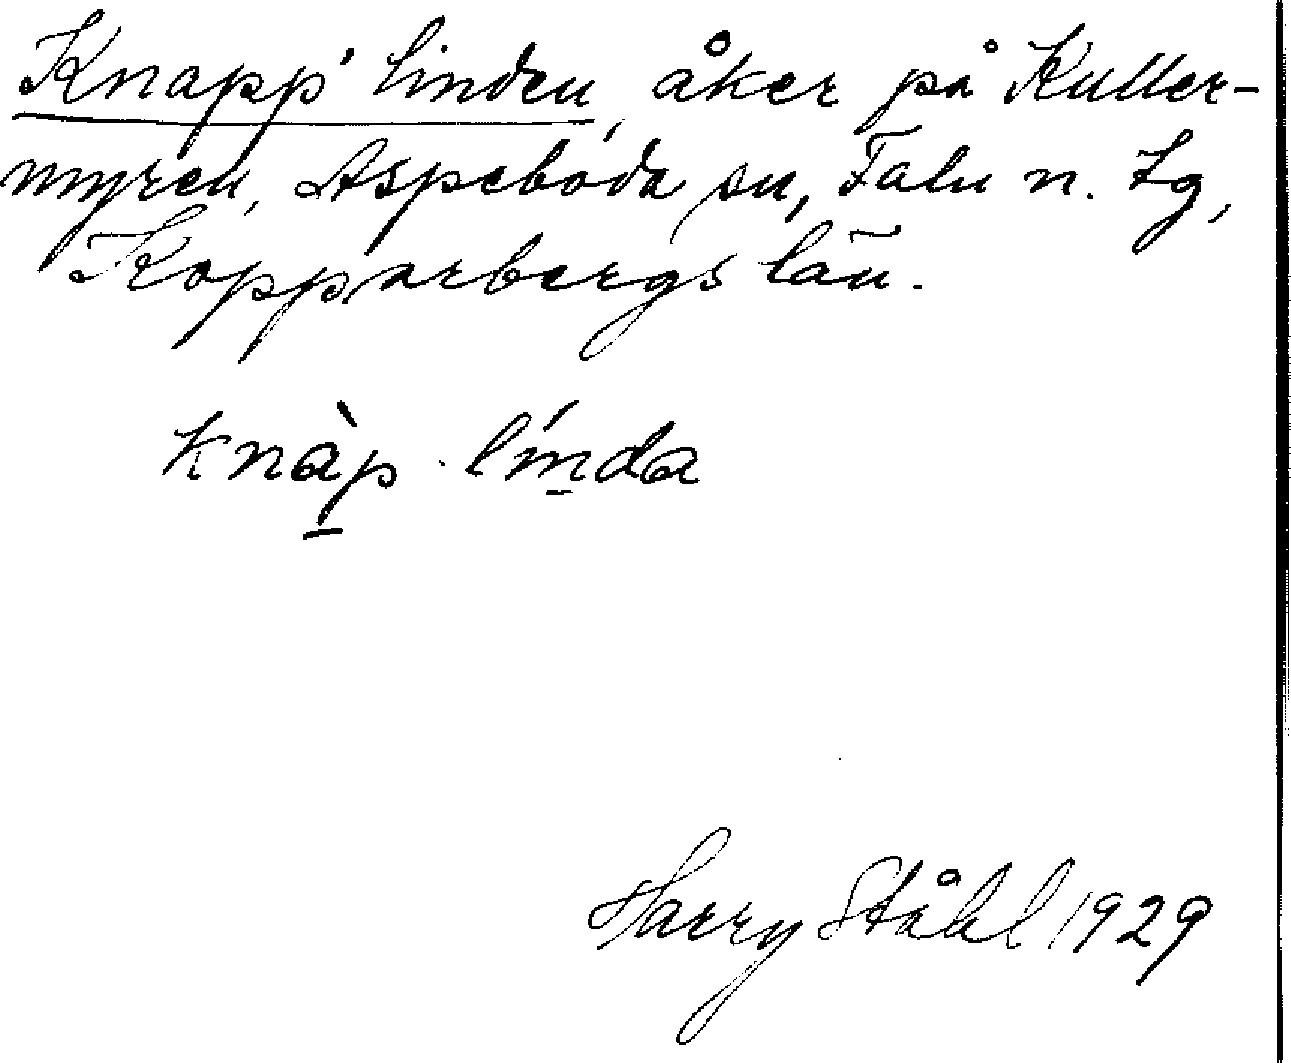 Knapp'linden, åker på Kuller-
myren, Aspeboda sn, Falu n. tg,
Kopparbergs län.
knàp línda
Harry Ståhl 1929